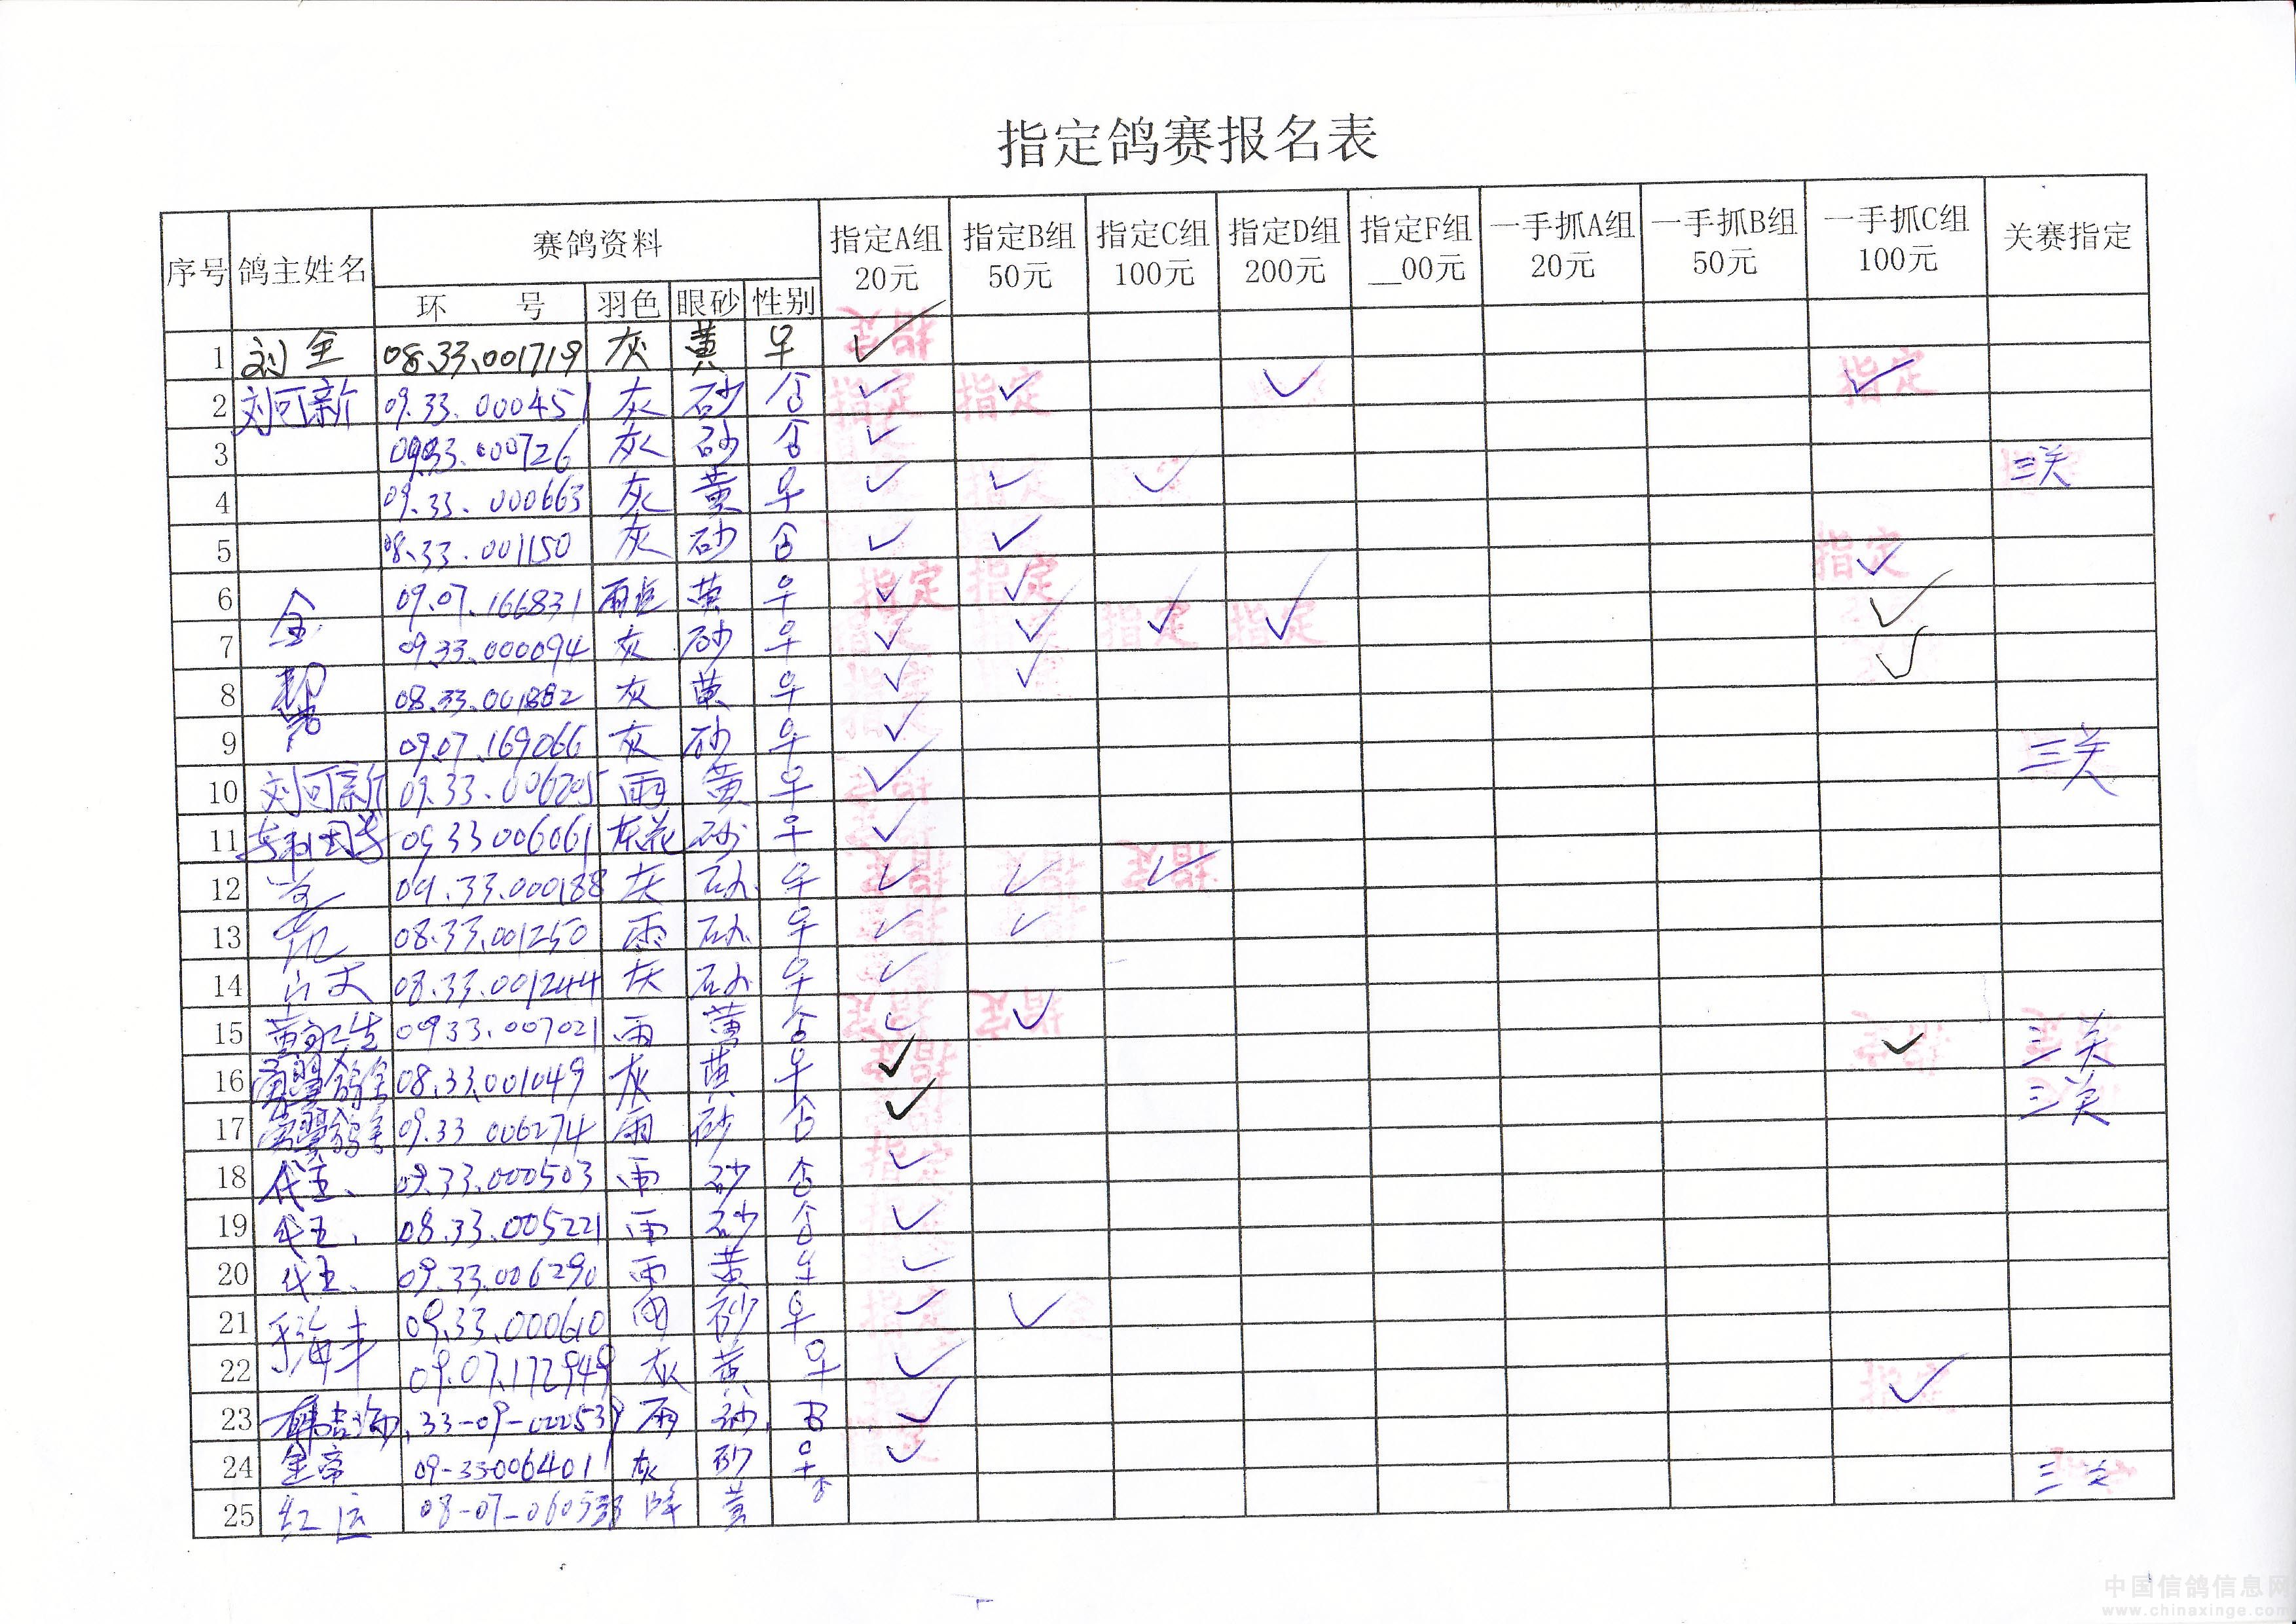 指定鸽赛报名表
序号 鸽主姓名 赛鸽资料 指定A组 20元 指定B组 50元 指定C组 100元 指定D组 200元 指定F组 __00元 一手抓A组 20元 一手抓B组 50元 一手抓C组 100元 关赛指定
环 号 羽色 眼砂 性别
1 刘全 08.33.001719 灰 黄 ♀ 指定 ✓
2 刘可新 09.33.000451 灰 砂 指定 ✓ 指定 ✓ ✓ 指定 ✓
3 09.33.000726 灰 砂 ✓
4 09.33.000663 灰 黄 ♀ ✓ ✓ ✓ 三关
5 08.33.001150 灰 砂 ✓ ✓
6 金 09.07.166831 雨点 黄 ♀ 指定 ✓ 指定 ✓ 指定 ✓
7 09.33.000094 灰 砂 ♀ ✓ ✓ 指定 ✓ 指定 ✓ ✓
8 08.33.001882 灰 黄 ♀ ✓ ✓ ✓
9 09.07.169066 灰 砂 ♀ ✓
10 刘可新 09.33.006205 雨 黄 ♀ ✓ 三关
11 09 33 006061 灰花 砂 ♀ ✓
12 09.33.000188 灰 砂 ♀ 指定 ✓ 指定 ✓ 指定 ✓
13 08.33.001250 雨 砂 ♀ ✓ ✓
14 08.33.001244 灰 砂 ♀ ✓
15 黄永生 0933.007021 雨 黄 指定 ✓ 指定 ✓
16 08.33.001049 灰 黄 ♀ 指定 ✓ 指定 ✓ 三关
17 09.33 006274 雨 砂 ✓ 三关
18 代主、 09.33.000503 雨 砂 指定 ✓
19 08.33.005221 雨 砂 ✓
20 09.33.006290 雨 黄 ♀ ✓
21 09.33.000610 雨 砂 ♀ 指定 ✓ ✓
22 09.07.172949 灰 黄 ♀ ✓
23 33-09-000539 雨 砂 ✓ 指定 ✓
24 金帝 09-33006401 灰 砂 ♀ ✓
25 红运 08-07-060538 绛 黄 三关
中国信鸽信息网
www.chinaxinge.com